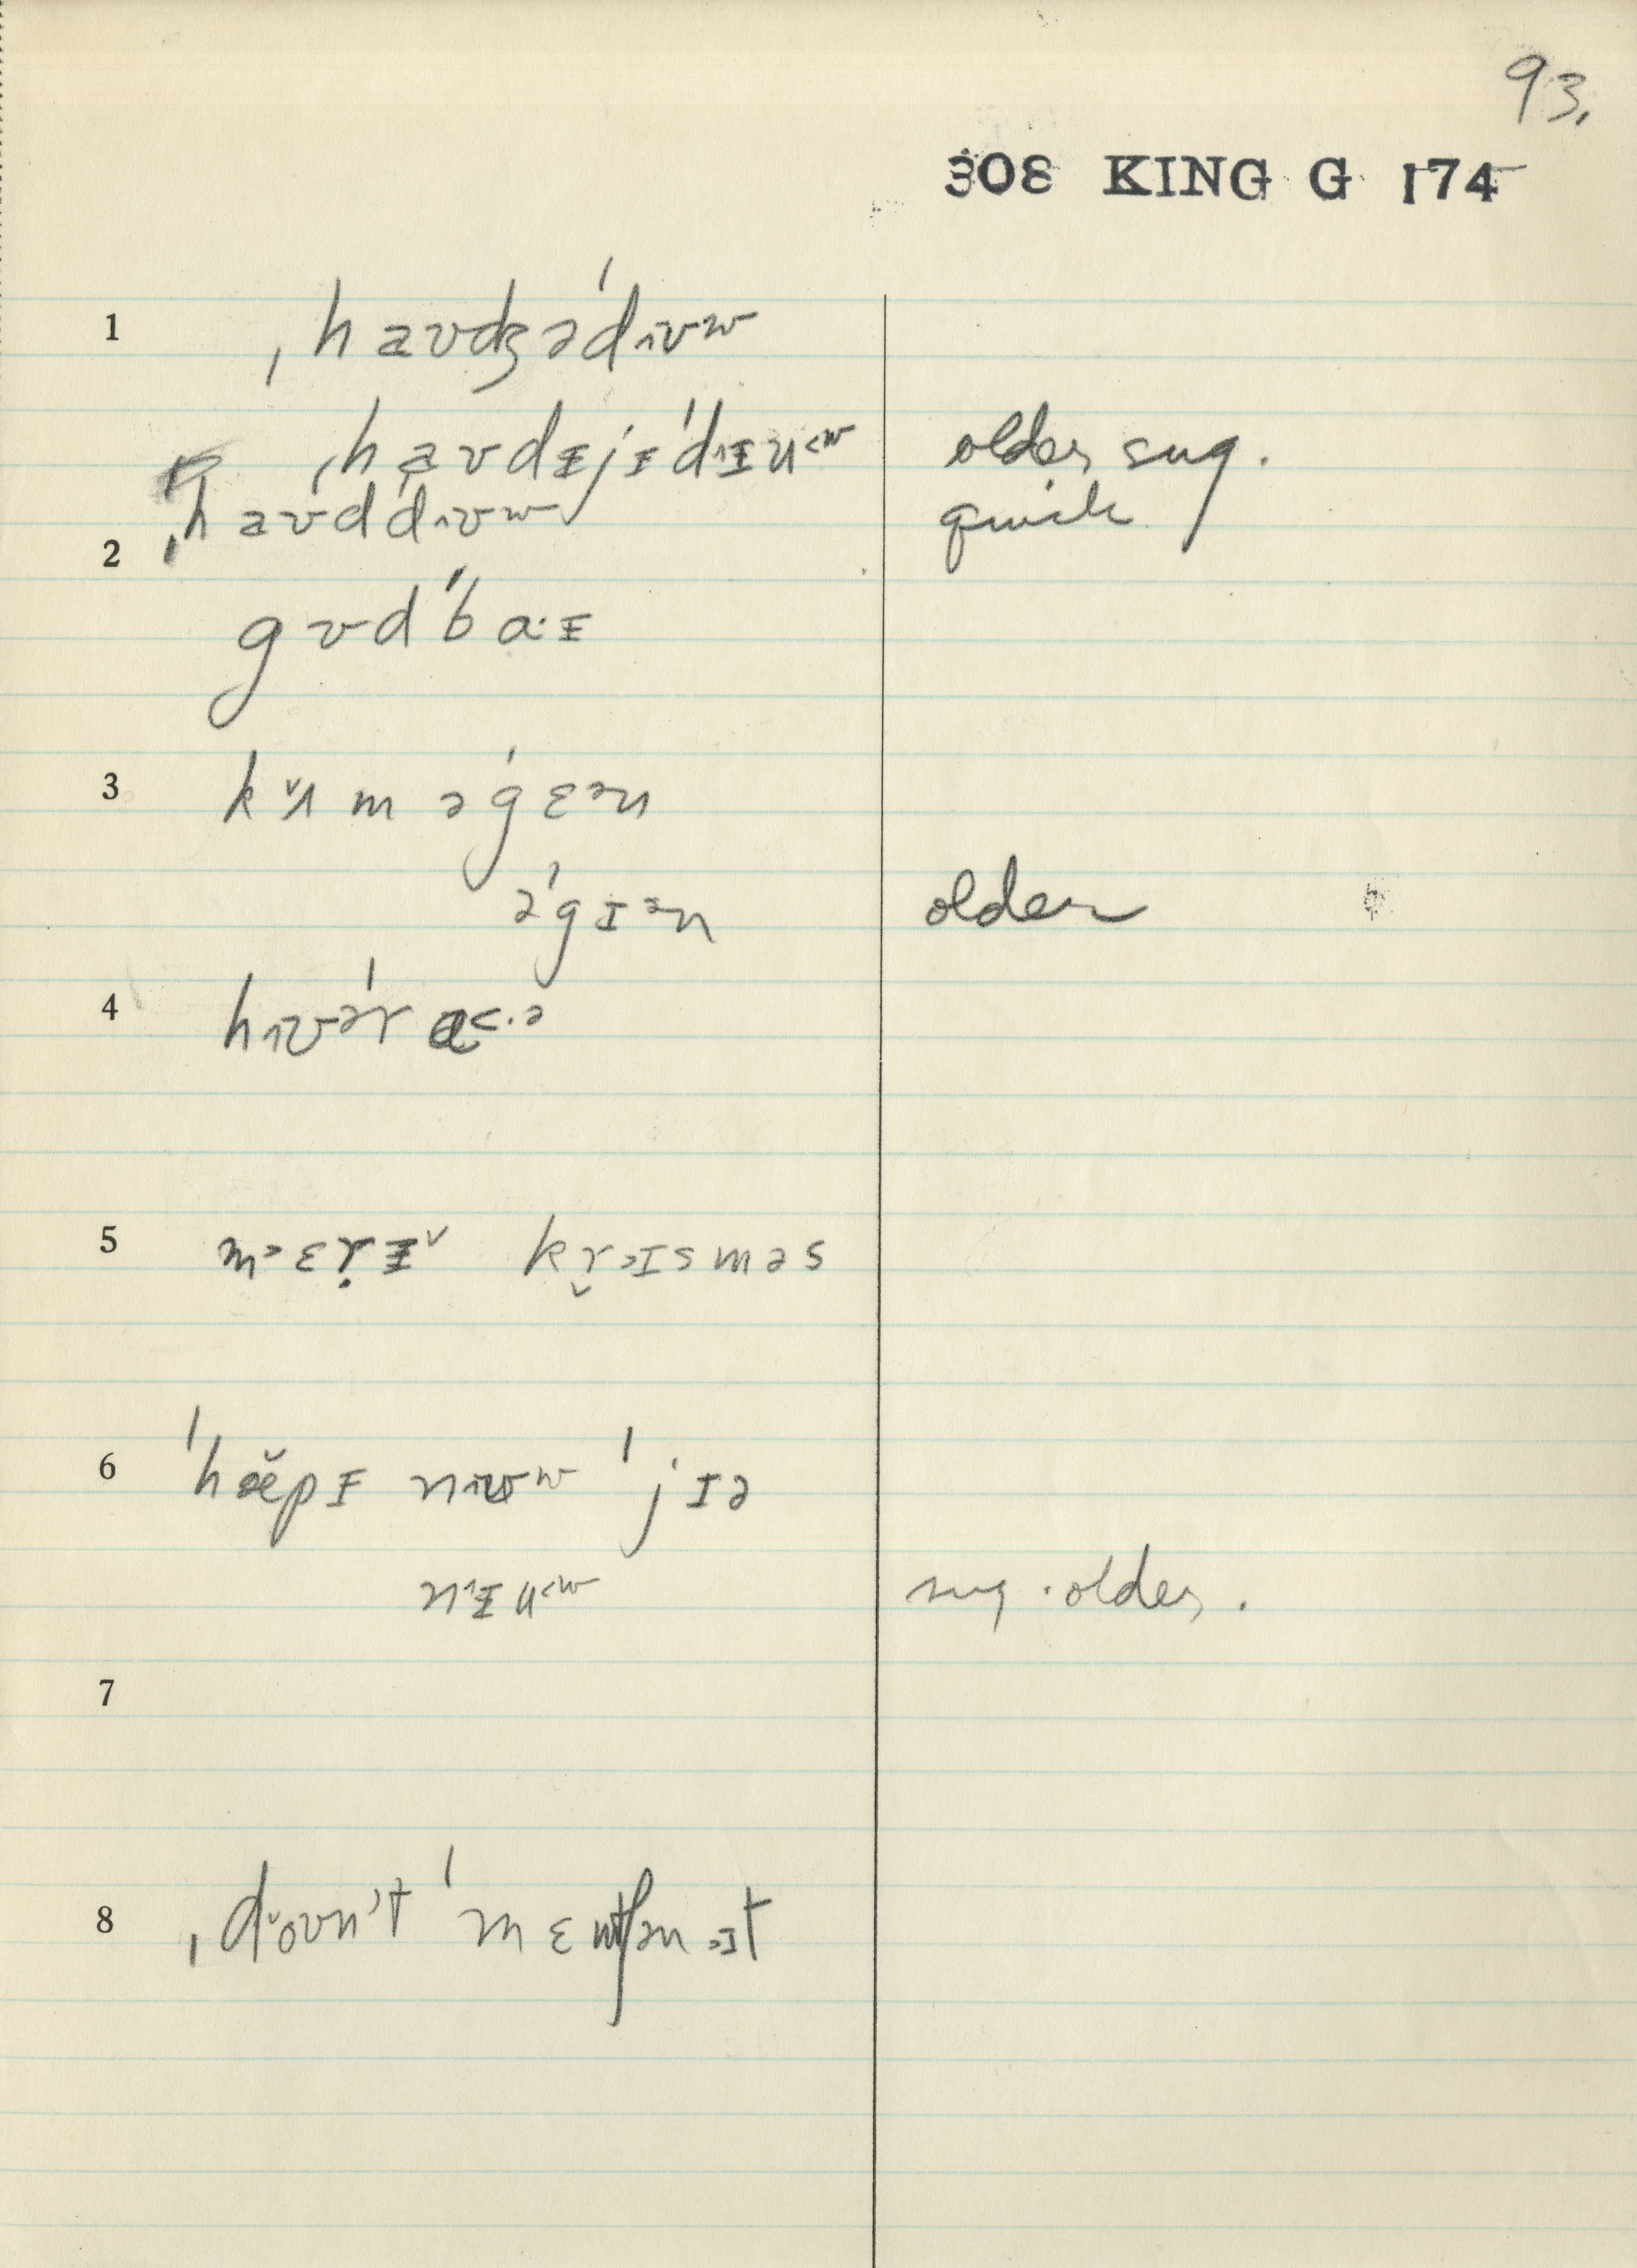 93.
308 KING G 174
1 ˌhaʊdʒəˈdɪʊʷ
ˌhaʊdɨjɨˈdɨu˂ʷ older sug.
ˌhaʊdˈdɪʊʷ quick
2
gʊdˈbaˑɨ
3 kʌ̌məˈgɛᵊn
əˈgɪᵊn older
4 hɪʊəˈrɑ˂·ə
5 m˃ɛṛɨˇ kr̬˃ɪsməs
6 ˈhæ̆pɨ nɪʊʷ ˈjɪə
nɨu˂ʷ sug. older.
7
8 ˌdˇoʊn't ˈmɛntʃən ˃ɪt